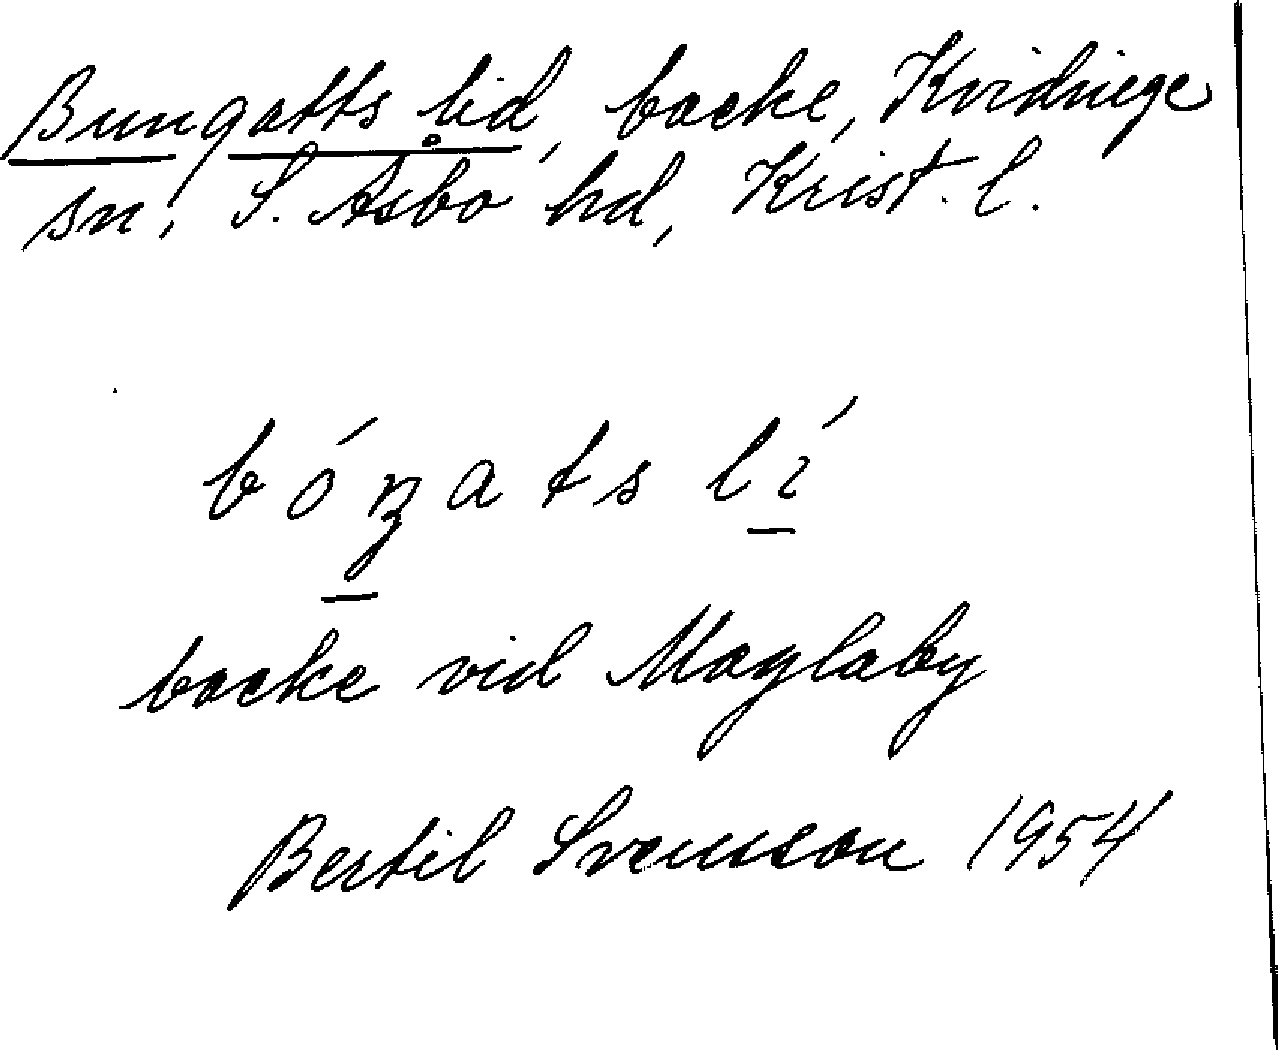 Bungatts lid, backe, Kvidinge
sn, S. Åsbo hd, Krist. l.
bóŋats lí
backe vid Maglaby
Bertil Svensson 1954